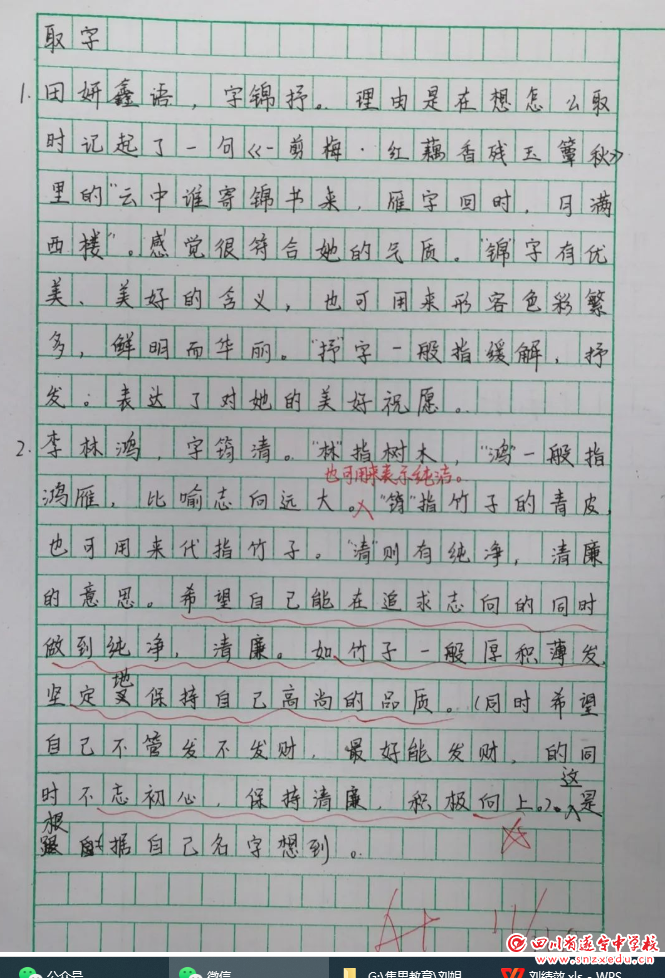 取字
1. 田妍鑫语，字锦抒。理由是在想怎么取
时记起了一句《一剪梅·红藕香残玉簟秋》
里的“云中谁寄锦书来，雁字回时，月满
西楼”。感觉很符合她的气质。“锦”字有优
美、美好的含义，也可用来形容色彩繁
多，鲜明而华丽。“抒”字一般指缓解，抒
发。表达了对她的美好祝愿。
2. 李林鸿，字筠清。“林”指树木，“鸿”一般指
也可用来表示纯洁。
鸿雁，比喻志向远大。“筠”指竹子的青皮，
也可用来代指竹子。“清”则有纯净，清廉
的意思。希望自己能在追求志向的同时
做到纯净，清廉。如竹子一般厚积薄发，
坚定地保持自己高尚的品质。（同时希望
自己不管发不发财，最好能发财，的同
时不忘初心，保持清廉，积极向上。）。这是
根据自己名字想到。
A+
四川省遂宁中学校
www.snzxedu.cn
公众号
微信
G:\集思教育\刘旭
刘绩效.xls - WPS